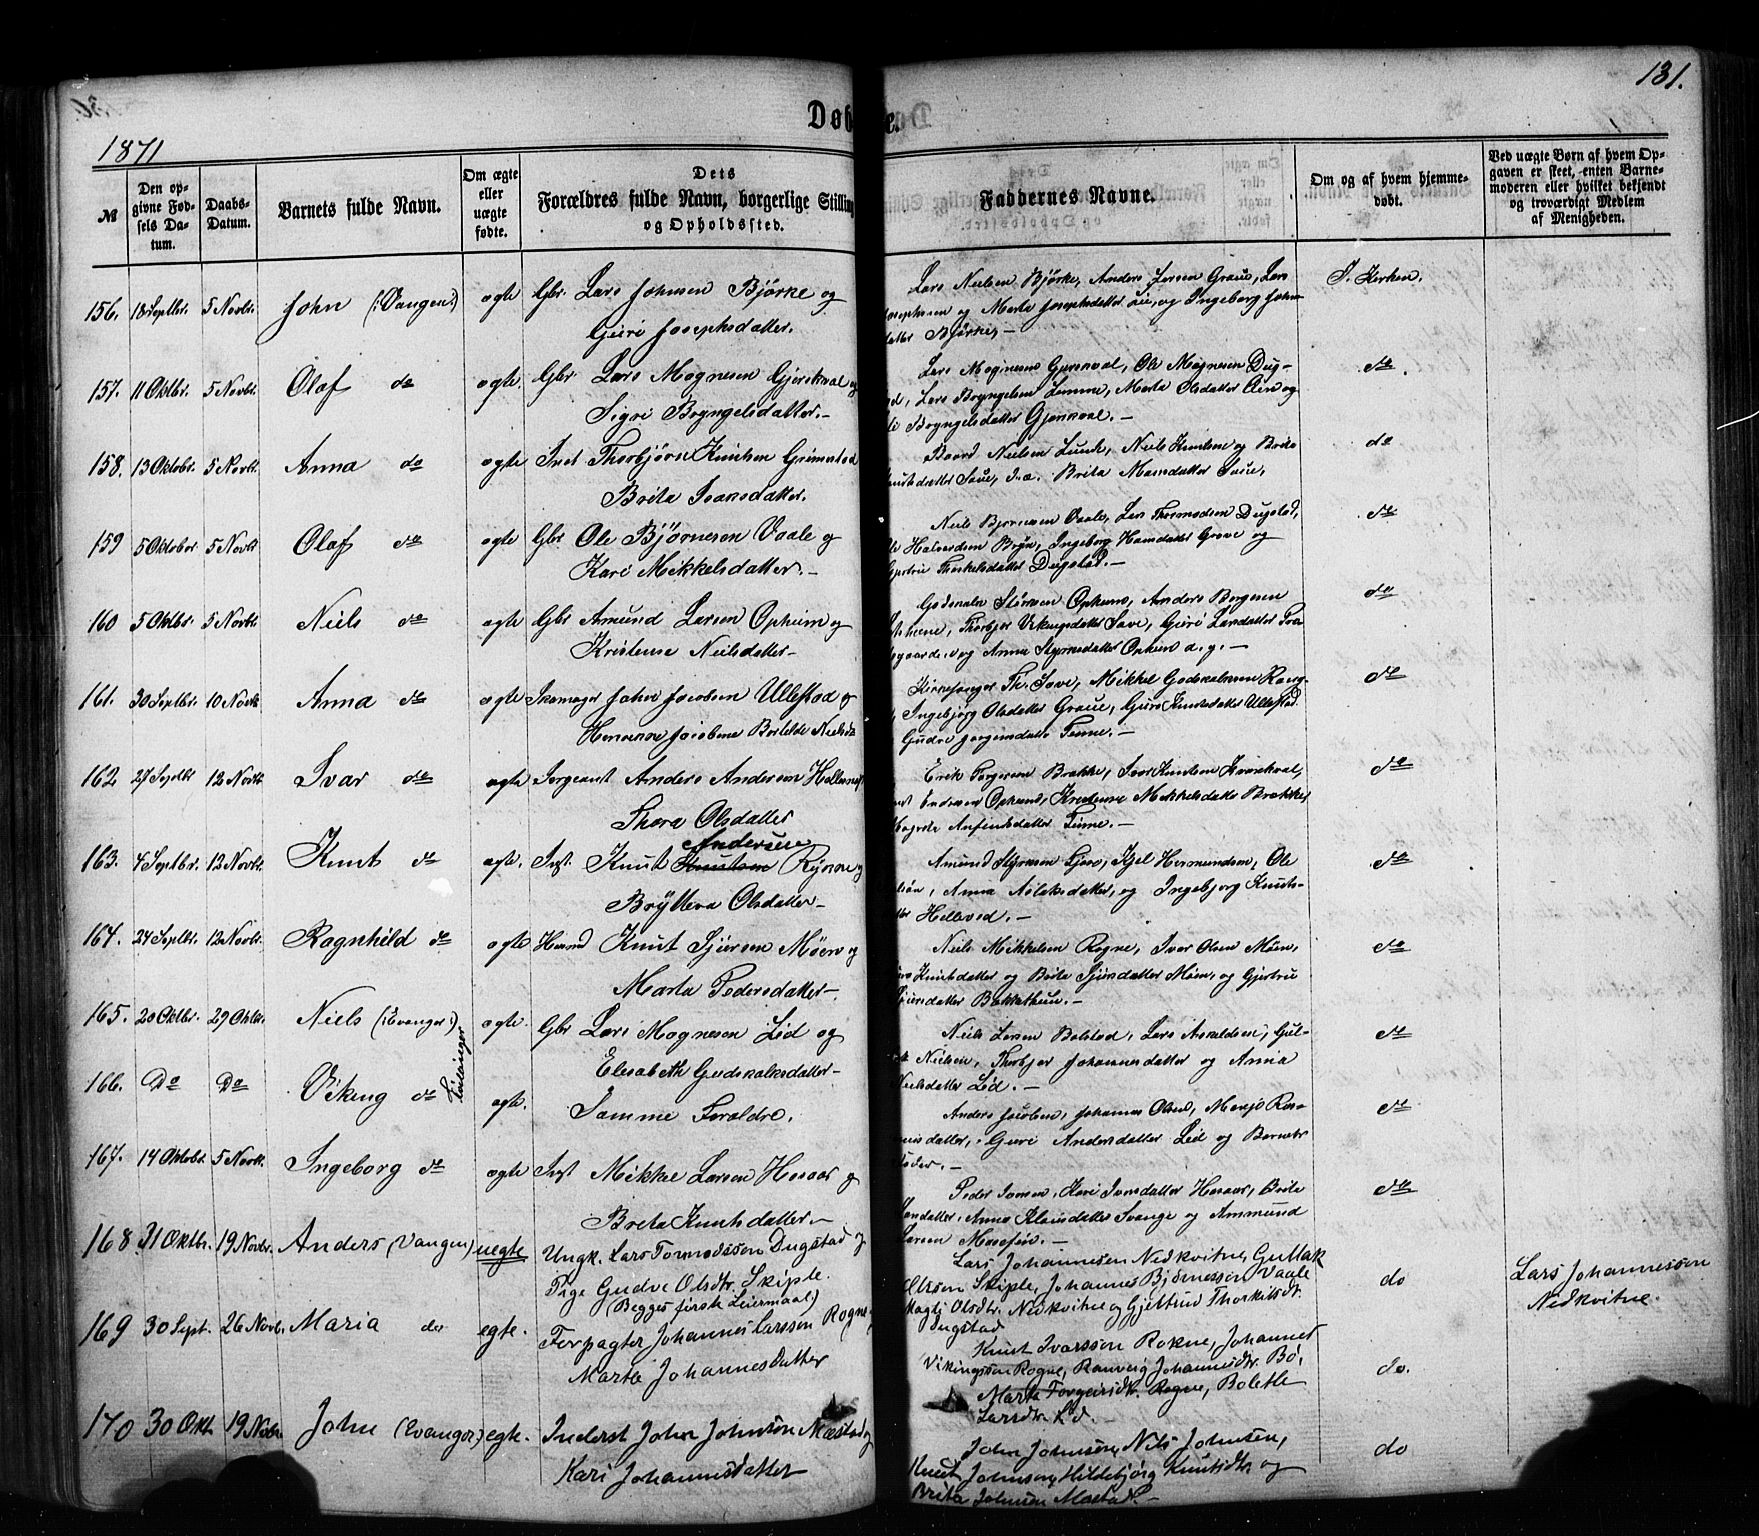 131.
Døbte.
1871
№
Den opgivne Fødsels Datum.
Daabs-Datum.
Barnets fulde Navn.
Om ægte eller uægte fødte.
Dets Forældres fulde Navn, borgerlige Stilling og Opholdssted.
Faddernes Navne.
Om og af hvem hjemmedøbt.
Ved uægte Børn af hvem Opgaven er skeet, enten Barnemoderen eller hvilket bekjendt og troværdigt Medlem af Menigheden.
156. 18 Septbr. 5 Novbr. John (:Vangen:) ægte Gbr. Lars Johnsen Bjørke og
Guri Josephsdatter.
Lars Nielsen Bjørke, Anders Larsen Graue, Lars
Josephsen og Marta Josephsdatter og Ingeborg John
datter Bjørke,
I Kirken.
157. 11 Oktbr. 5 Novbr. Olaf do ægte. Gbr Lars Mognesen Gjerskval og
Sigri Bryngelsdatter.
Lars Mognesen Gjerskval, Ole Mognesen Dug-
Lars Bryngelsen Marta Olsdatter og
Bryngelsdatter Gjerskval.
do.
158. 13 Oktobr. 5 Novbr. Anna do ægte Inst Thorbjørn Knutsen Grimestad
Brita Ivarsdatter.
Baard Nielsen Lunde, Neils Knutsen og Brita
Knutsdatter Saue, Brita Monsdatter Saue,
do
159 5 Oktober 5 Novbr Olaf do ægte Gbr Ole Bjørnesen Vaale og
Kari Mikkelsdatter.
Neils Bjørnesen Vaale, Lars Thormodsen Dugstad,
Halvordsen Bryn, Ingeborg Hansdatter Grove og
Gjertru Thorkelsdatter Dugstad.
do
160 5 Oktbr. 5 Novbr. Niels do ægte Gbr Amund Larsen Opheim og
Kristense Neilsdatter
Godskalk Størksen Opheim, Anders Borgesen
Opheim, Thorbjør Vikingsdatter Saue, Guri Larsdatter
og Anna Styrksdatter Opheim
do
161. 30 Septbr. 10 Novbr Anna do ægte Skomager John Jacobsen Ullestad og
Jacobine Botilde
Kirkesanger Th. Saue, Mikkel Godskalksen
Ingebjørg Olsdatter Graue, Guro Knutsdatter Ullestad.
Gudve Jørgensdatter Finne.
do
162 27 Septbr 12 Novbr Ivar do ægte Sergeant Anders Andersen
Thora Olsdatter
Erik Torgersen Brække, Ivar Knutsen
Endresen Opheim, Kristense Mikkelsdatter Brække
Anfinsdatter Finne.
do
163. 4 Septbr. 12 Novbr. Knut do ægte. Inst. Knut Knutsen Andersen Rynne og
Brytteva Olsdatter
Amund Styrksen Gjøro, Kjel Hermundsen, Ole
Anna Aslaksdatter, og Ingebjørg Knuts-
datter Hellesed.
do
164. 24 Septbr. 12 Novbr. Ragnhild do ægte Husmd Knut Sjursen Møen og
Marta Pedersdatter
Neils Mikkelsen Rogne, Ivar Olsen Møen,
Knutsdatter og Brita Sjursdatter Møen, og Gjertru
Sjursdatter Bakkethun.
do
165. 20 Oktbr. 29 Oktbr. Niels (:Evanger:) ægte. Gbr Lars Mognesen Lid og
Elisabeth Godskalksdatter
Neils Larsen Bolstad, Lars Asvaldsen, Gul-
Nielsen, Thorbjør Johannesdatter og Anna
Neilsdatter Lid.
do
Tvillinger
166. Do Do Viking do ægte. Samme Forældre.
Anders Jacobsen, Johannes Olsen,
Guri Andersdatter Lid og Barnets
Moder.
do
167. 14 Oktobr. 5 Novbr. Ingeborg do ægte Inst Mikkel Larsen Horvei og
Brita Knutsdatter
Peder Larsen, Kari
og Ammund
Larsen
do
168 31 Oktbr. 19 Novbr. Anders (Vangen) uegte Ungk. Lars Tormodssøn Dugstad og
Pige Gudve Olsdtr Skiple.
(Begges første Leiermaal)
Lars Johannessen Nedkvitne, Gullak
Olsson Skiple, Johannes Bjørnesson Vaale
Magli Olsdtr. Nedkvitne og Gjertrud Thorkilsdtr.
Dugstad
do
Lars Johannessøn
Nedkvitne.
169 30 Sept. 26 Novb. Maria do egte. Forpagter Johannes Larssøn Rogne
Marta Johannesdatter
Knut Ivarssøn Rokne, Johannes
Vikingssøn Rogne, Ranveig Johannesdtr. Bø,
Marta Torgeirsdtr. Rogne, Bolette
Larsdtr Lid.
do.
170 30 Okt. 19 Nobr. John (Evanger) egte. Inderst John Johnsøn Mæstad og
Kari Johannesdatter
John Johnsøn, Nils Johnsen,
Knut Johnsøn, Hildebjørg Knutsdtr og
Brita Johnsen Mæstad.
do